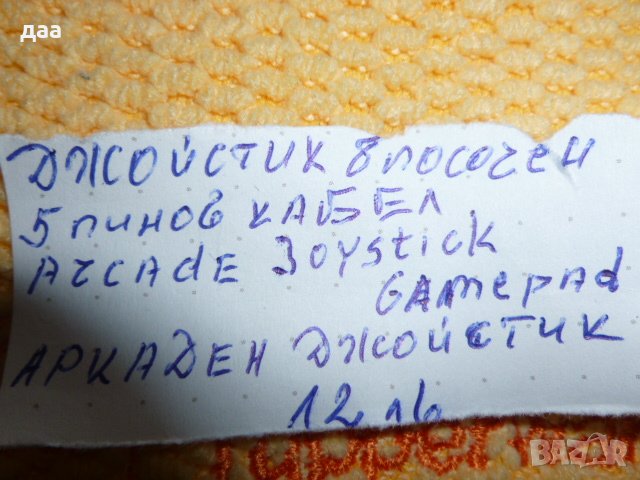 даа
ДЖОЙСТИК 8 посочен
5 пинов КАБЕЛ
Arcade Joystick
Gamepad
АРКАДЕН ДЖОЙСТИК
12 лв
BAZAR